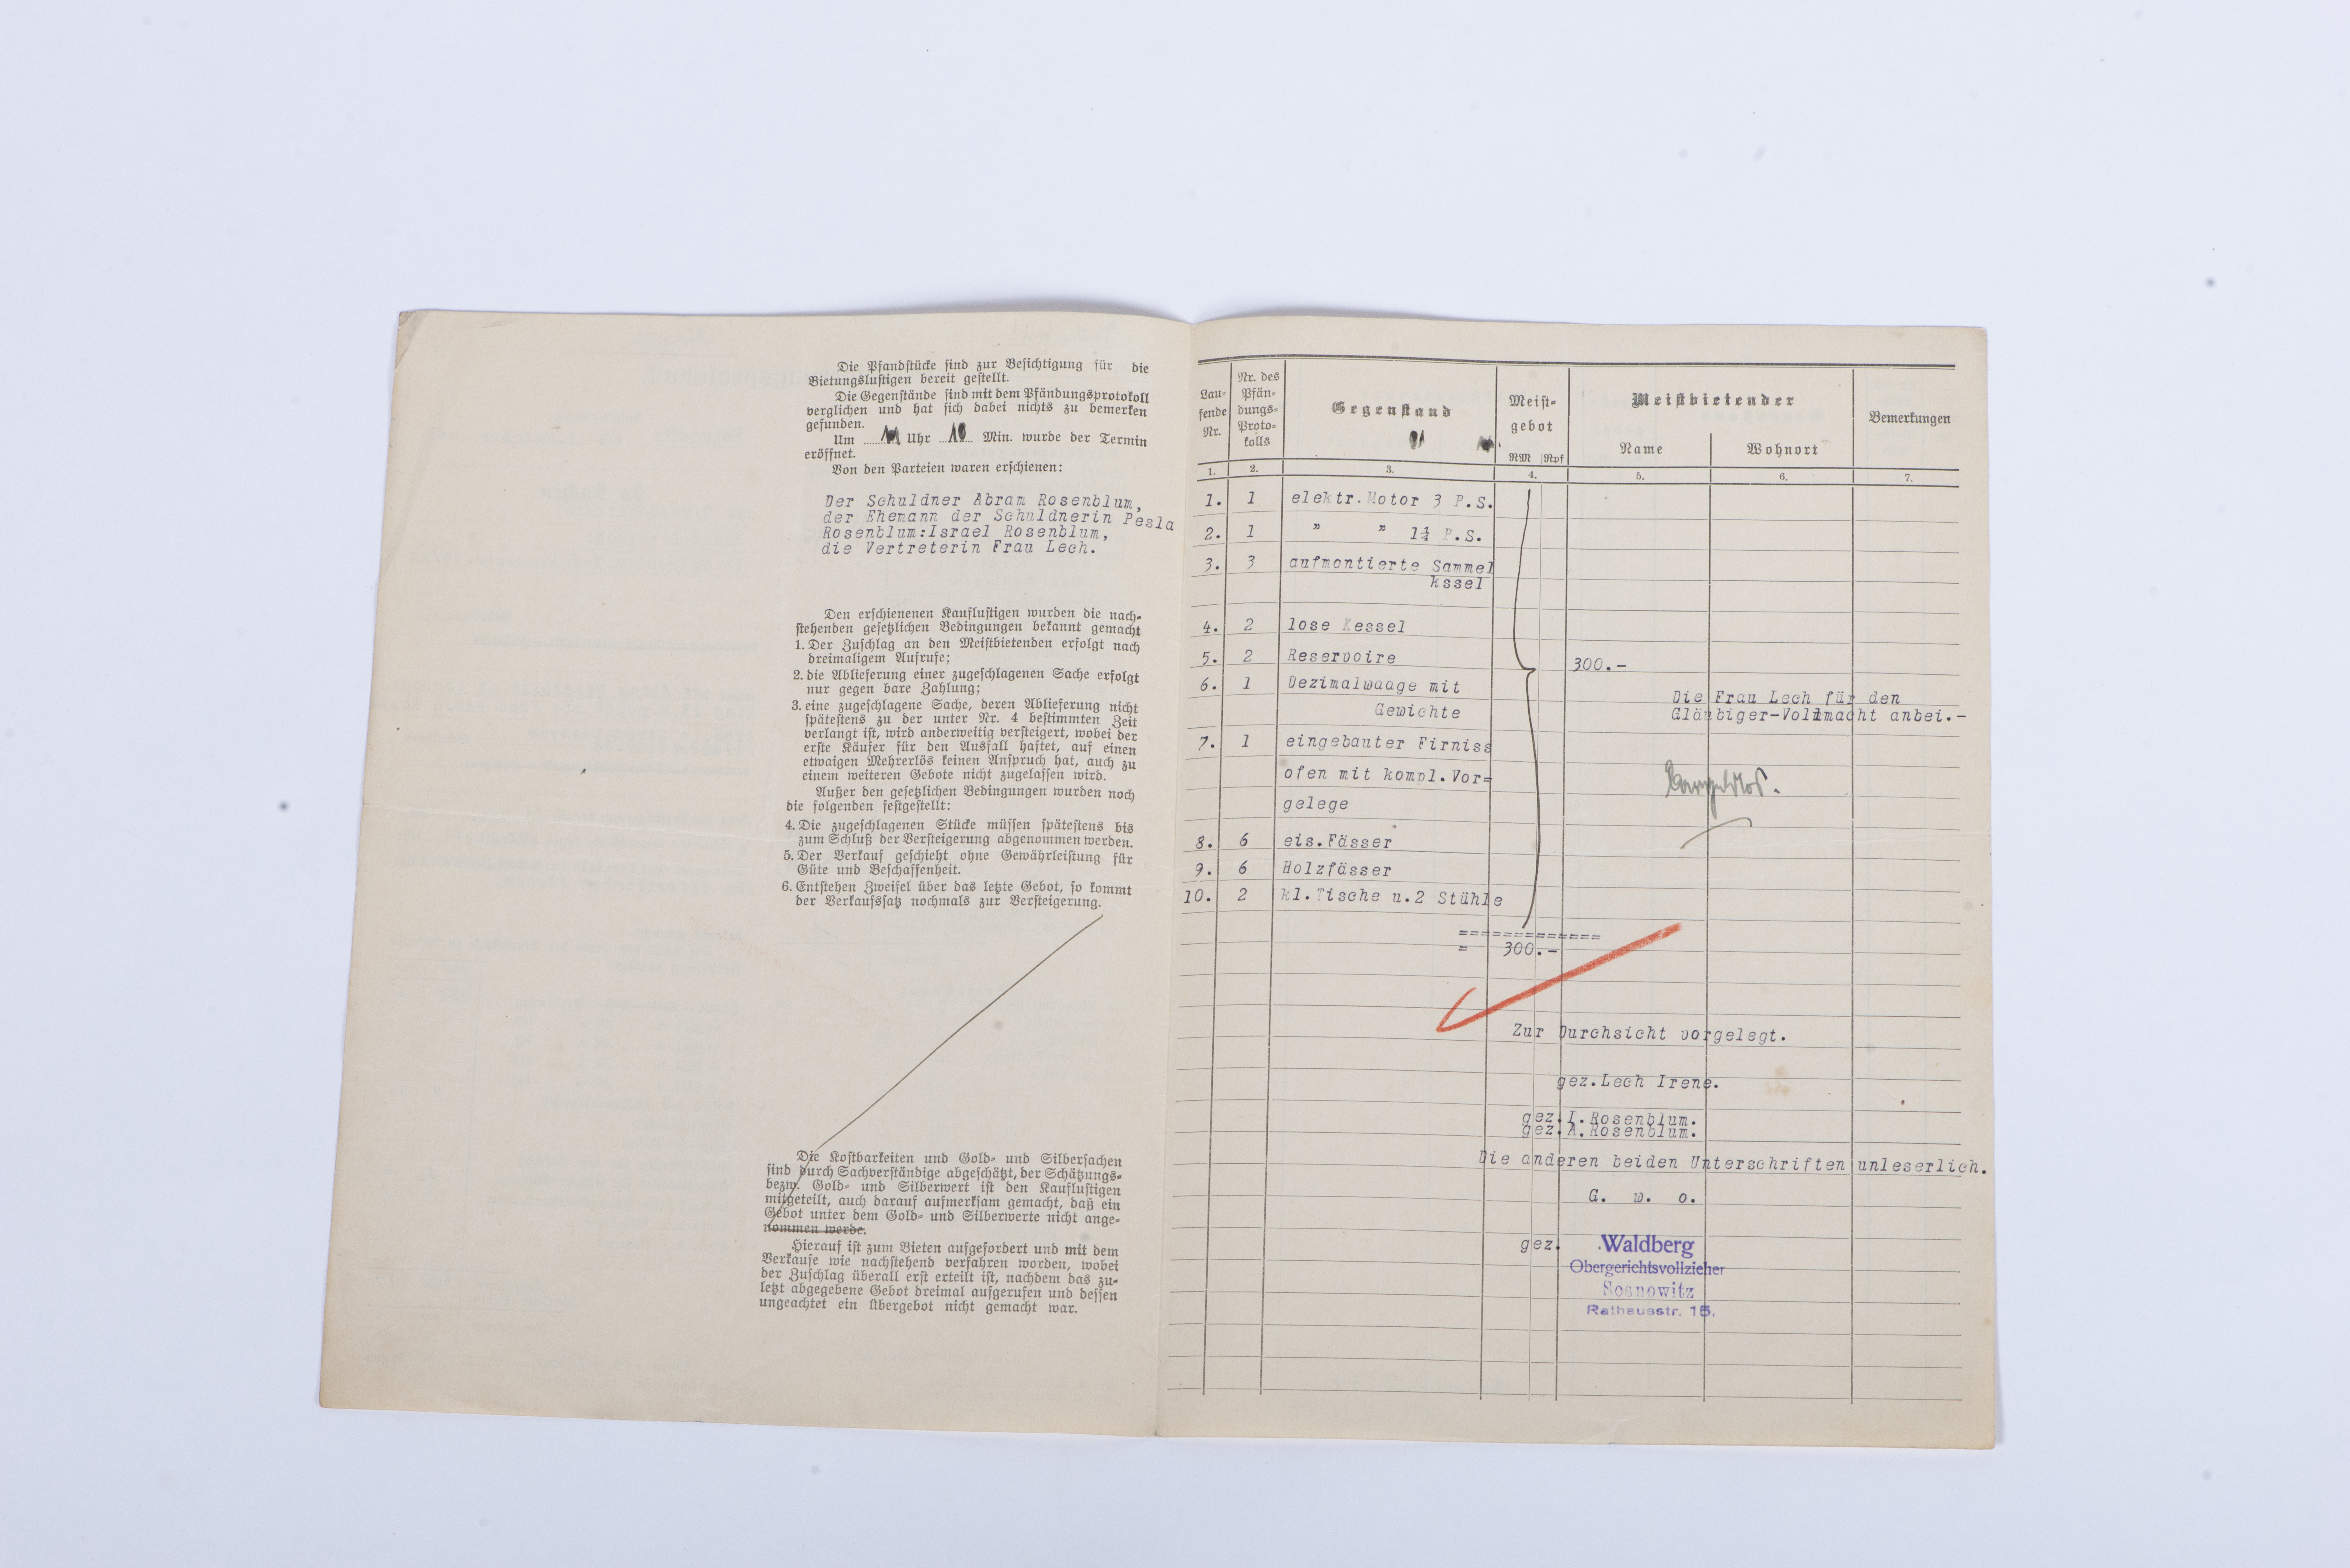 Die Pfandstücke sind zur Besichtigung für die
Bietungslustigen bereit gestellt.
Die Gegenstände sind mit dem Pfändungsprotokoll
verglichen und hat sich dabei nichts zu bemerken
gefunden.
Um 11 Uhr 10 Min. wurde der Termin
eröffnet.
Von den Parteien waren erschienen:
Der Schuldner Abram Rosenblum,
der Ehemann der Schuldnerin Pesla
Rosenblum:Israel Rosenblum,
die Vertreterin Frau Lech.
Den erschienenen Kauflustigen wurden die nach-
stehenden gesetzlichen Bedingungen bekannt gemacht
1. Der Zuschlag an den Meistbietenden erfolgt nach
dreimaligem Aufrufe;
2. die Ablieferung einer zugeschlagenen Sache erfolgt
nur gegen bare Zahlung;
3. eine zugeschlagene Sache, deren Ablieferung nicht
spätestens zu der unter Nr. 4 bestimmten Zeit
verlangt ist, wird anderweitig versteigert, wobei der
erste Käufer für den Ausfall haftet, auf einen
etwaigen Mehrerlös keinen Anspruch hat, auch zu
einem weiteren Gebote nicht zugelassen wird.
Außer den gesetzlichen Bedingungen wurden noch
die folgenden festgestellt:
4. Die zugeschlagenen Stücke müssen spätestens bis
zum Schluß der Versteigerung abgenommen werden.
5. Der Verkauf geschieht ohne Gewährleistung für
Güte und Beschaffenheit.
6. Entstehen Zweifel über das letzte Gebot, so kommt
der Verkaufssatz nochmals zur Versteigerung.
Die Kostbarkeiten und Gold- und Silbersachen
sind durch Sachverständige abgeschätzt, der Schätzungs-
bezw. Gold- und Silberwert ist den Kauflustigen
mitgeteilt, auch darauf aufmerksam gemacht, daß ein
Gebot unter dem Gold- und Silberwerte nicht ange-
nommen werde.
Hierauf ist zum Bieten aufgefordert und mit dem
Verkaufe wie nachstehend verfahren worden, wobei
der Zuschlag überall erst erteilt ist, nachdem das zu-
letzt abgegebene Gebot dreimal aufgerufen und dessen
ungeachtet ein Übergebot nicht gemacht war.
Lau-
fende
Nr.
Nr. des
Pfän-
dungs-
Proto-
kolls
Gegenstand
Meist-
gebot
RM Rpf
Meistbietender
Name Wohnort
Bemerkungen
1. 2. 3. 4. 5. 6. 7.
1. 1 elektr.Motor 3 P.S.
2. 1 " " 1¼ P.S.
3. 3 aufmontierte Sammel
kssel
4. 2 lose Kessel
5. 2 Reservoire 300.-
6. 1 Dezimalwaage mit
Gewichte
Die Frau Lech für den
Gläubiger-Vollmacht anbei.-
7. 1 eingebauter Firniss
ofen mit kompl.Vor=
gelege
8. 6 eis.Fässer
9. 6 Holzfässer
10. 2 kl.Tische u.2 Stühle
=============
= 300.-
Zur Durchsicht vorgelegt.
gez.Lech Irene.
gez.I.Rosenblum.
gez.A.Rosenblum.
Die anderen beiden Unterschriften unleserlich.
G. w. o.
gez. Waldberg
Obergerichtsvollzieher
Sosnowitz
Rathausstr. 15.